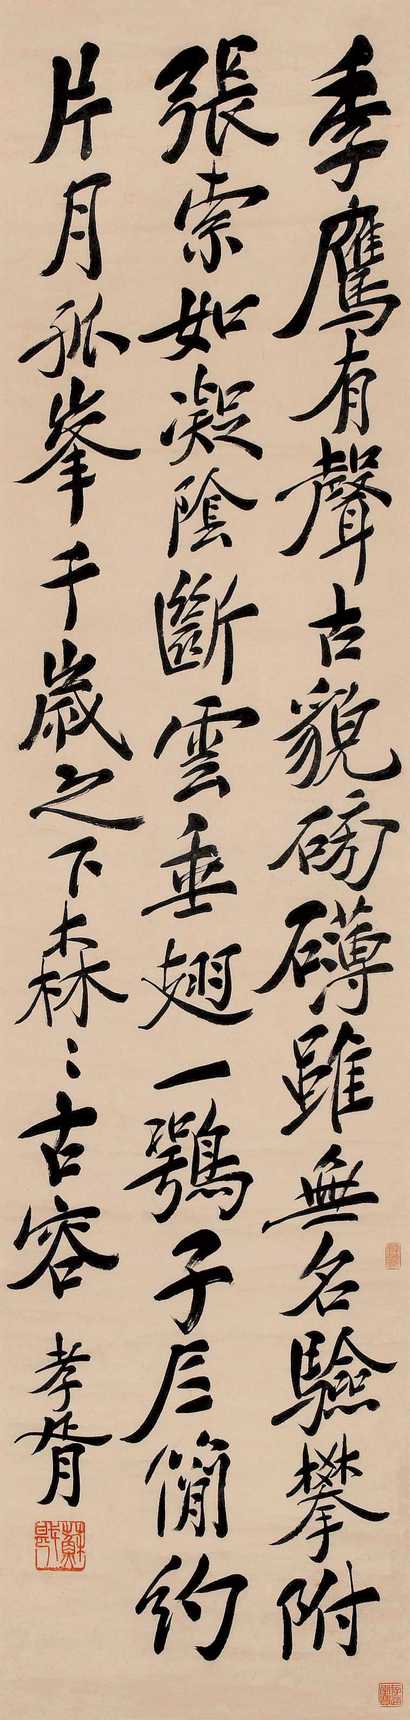 季鷹有聲古貌磅礴雖無名驗攀附
張索如凝陰斷雲垂翅一鶚子尺簡約
片月孤峯千歲之下森〻古容
孝胥
蘇戡